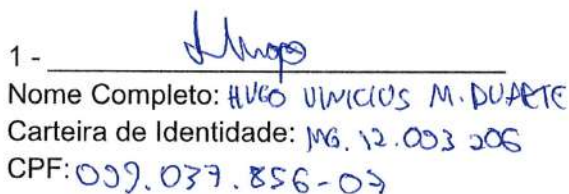 1 - Hugo
Nome Completo: HUGO VINICIUS M. DUARTE
Carteira de Identidade: MG. 12.093 206
CPF: 099.037.856-07